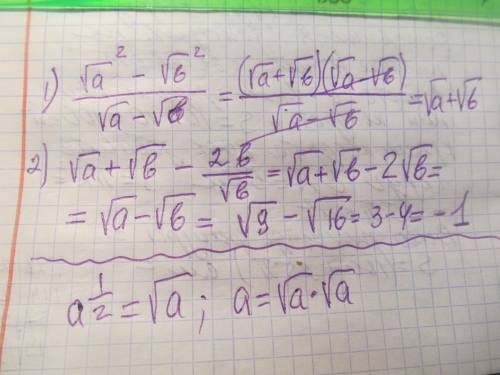 1) (√a² - √в²)/(√a - √в) = (√a+√в)(√a-√в)/(√a-√в) = √a+√в
2) √a + √в - 2в/√в = √a+√в - 2√в =
= √a - √в = √9 - √16 = 3-4 = -1
a^(1/2) = √a ; a = √a · √a